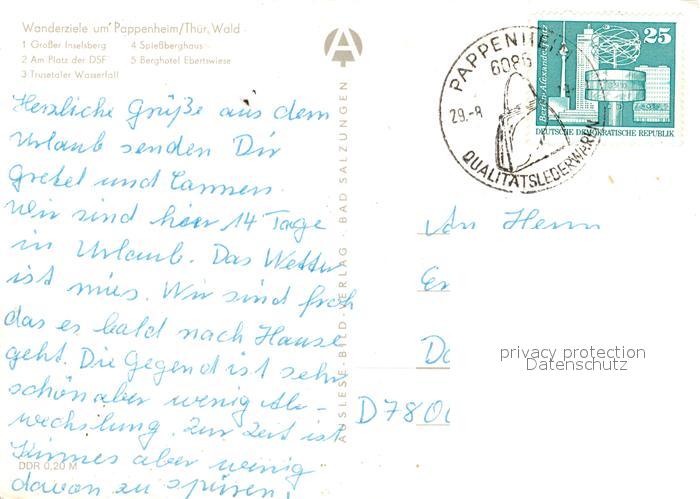 Wanderziele um Pappenheim/Thür. Wald
1 Großer Inselsberg 4 Spießberghaus
2 Am Platz der DSF 5 Berghotel Ebertswiese
3 Trusetaler Wasserfall
Herzliche Grüße aus dem
Urlaub senden Dir
Gretel und Carmen.
Wir sind hier 14 Tage
in Urlaub. Das Wetter
ist mies. Wir sind froh
das es bald nach Hause
geht. Die Gegend ist sehr
schön aber wenig Ab-
wechslung. Zur Zeit ist
Kirmes aber wenig
davon zu spüren!
DDR 0,20 M
AUSLESE-BILD-VERLAG · BAD SALZUNGEN
PAPPENHEIM
6086
29.-8
QUALITÄTSLEDERWAREN
25
Berlin-Alexanderplatz
DEUTSCHE DEMOKRATISCHE REPUBLIK
An Herrn
Er
Do
D780
privacy protection
Datenschutz